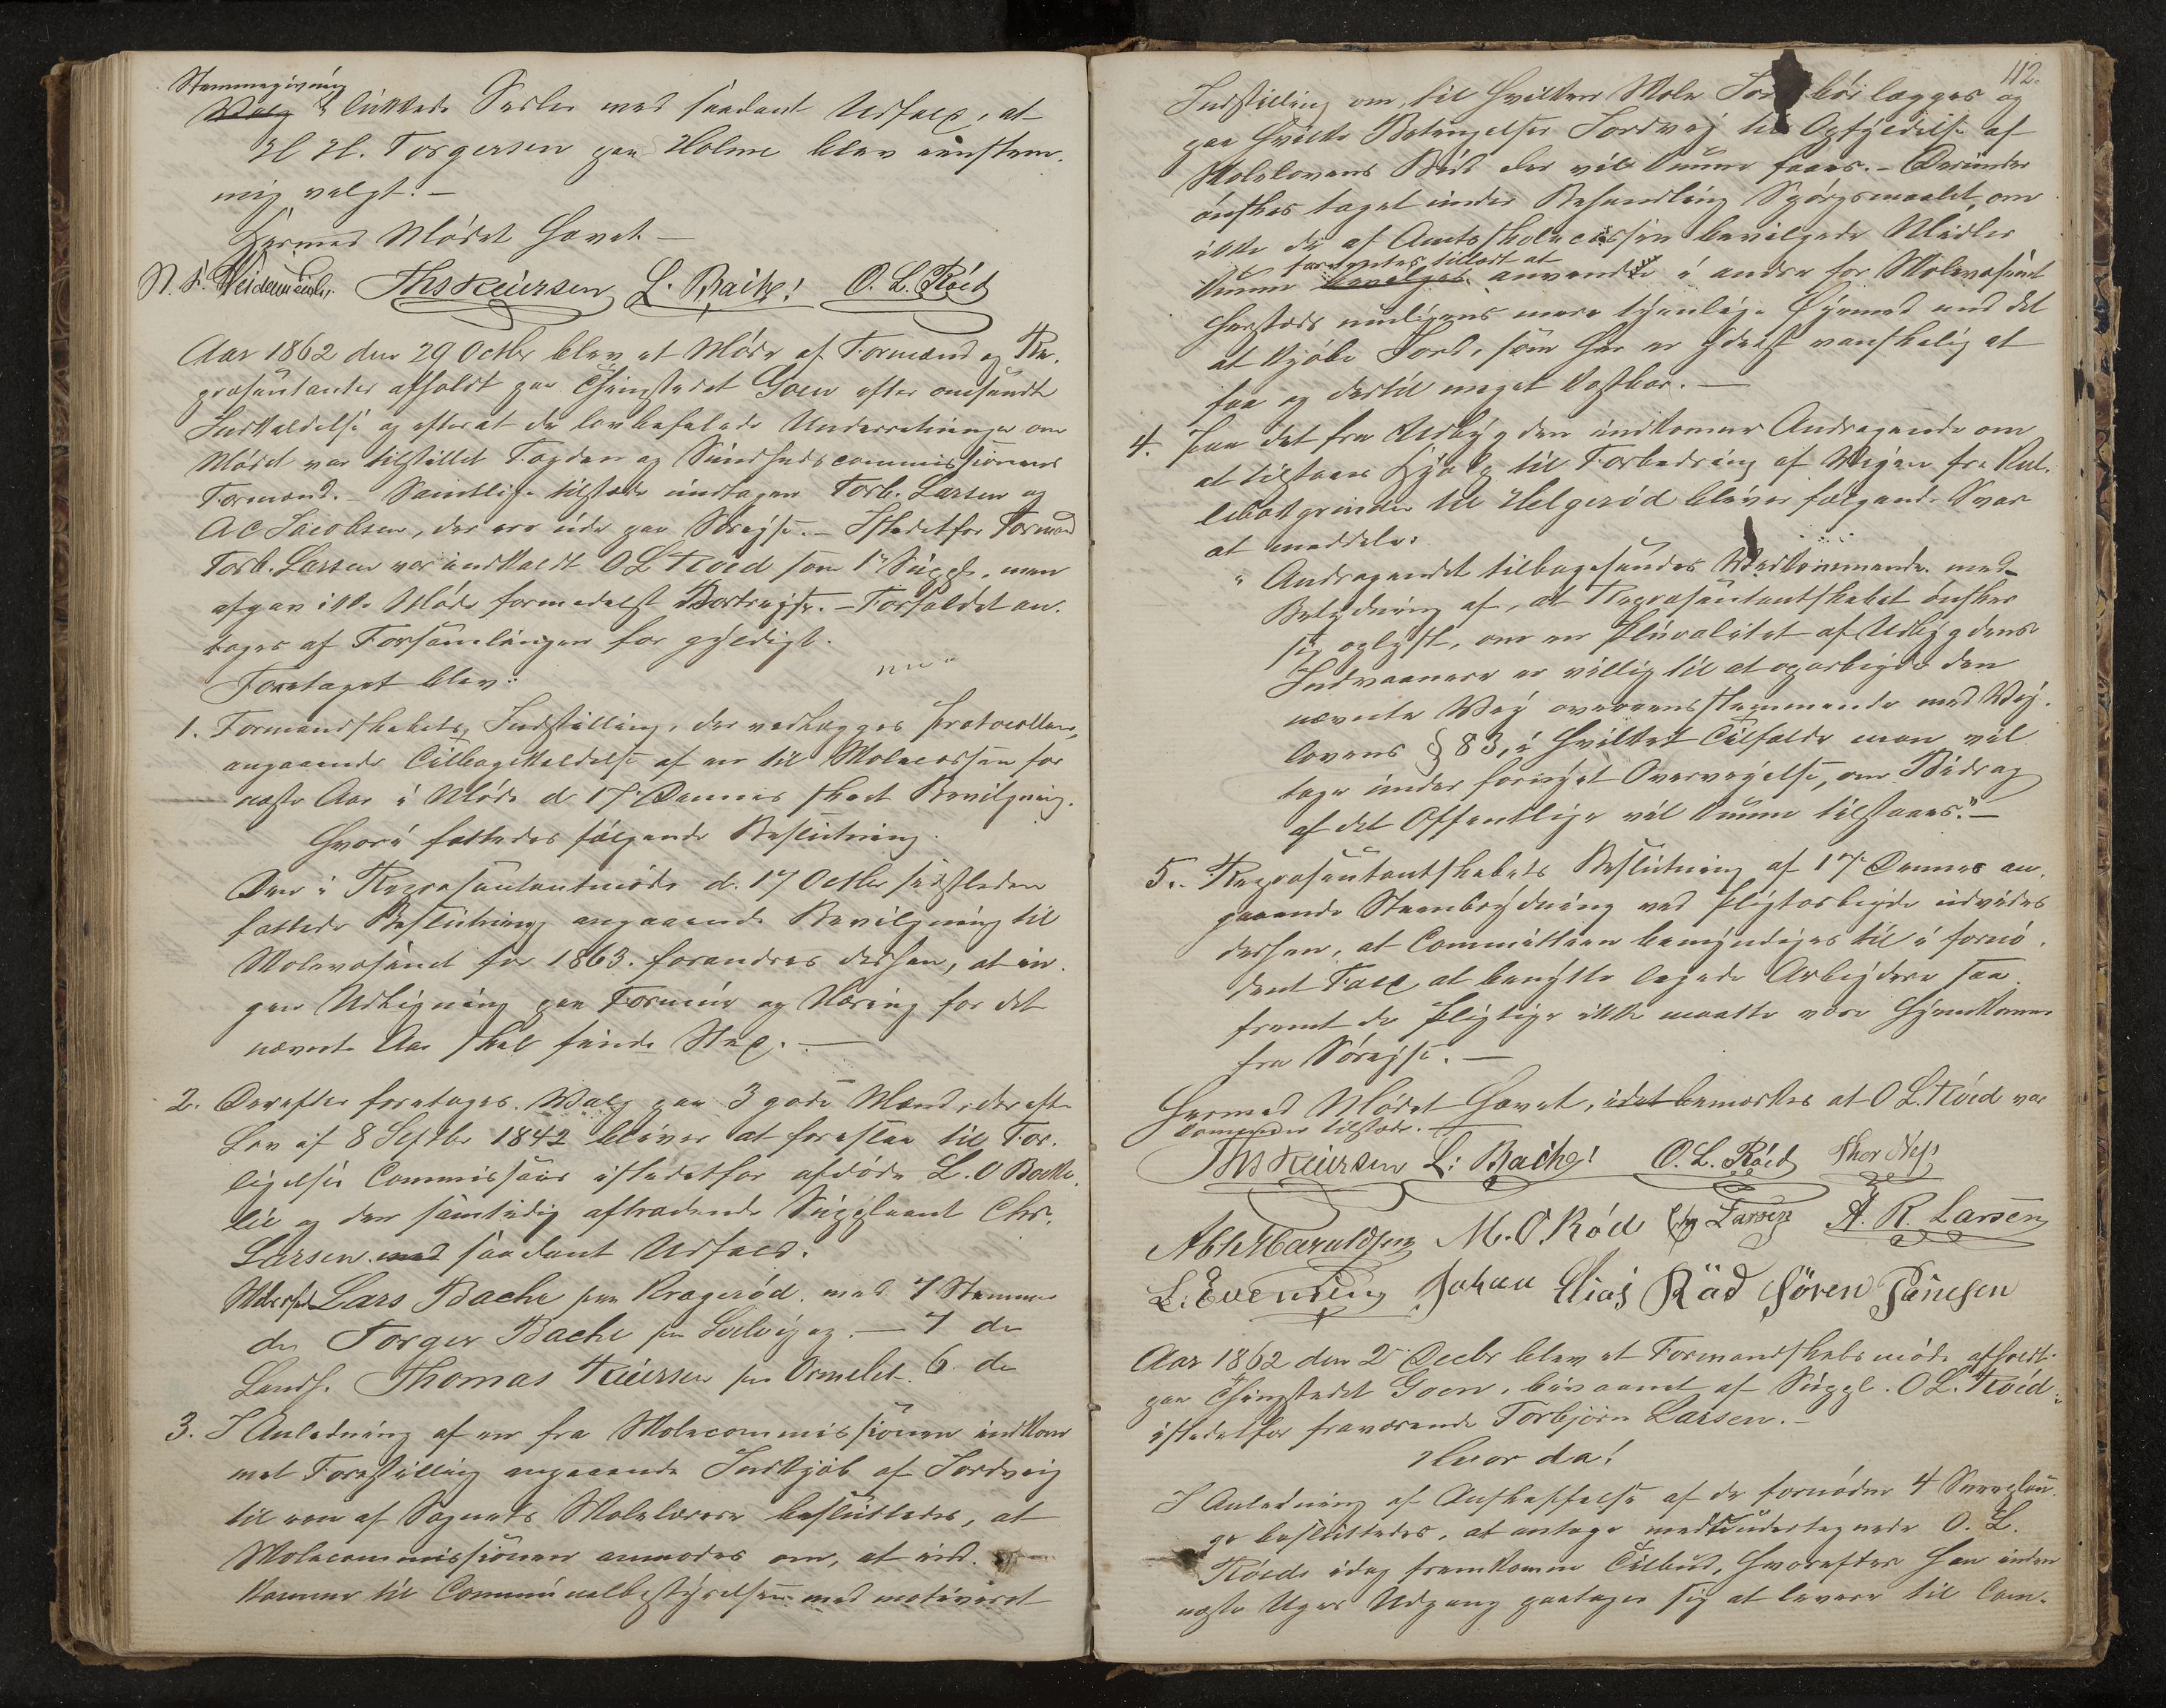 Stemmegivning
Valg i lukkede Sedler med saadant Udfald, at
H H. Torgersen paa Holme blev eenstem-
mig valgt. –
Hermed Mødet hævet –
Ths Reiersen L. Bache! O. L. Röed
Aar 1862 den 29 Octbr blev et Møde af Formænd og Re-
præsentanter afholdt paa Thingstedet Goen efter omsendt
Indkaldelse og efterat de lovbefalede Underretninger om
Mødet var tilstillet Fogden og Sundhedscommissionens
Formænd. – Samtlige tilstede undtagen Torb. Larsen og
A C Jacobsen, der ere ude paa Søreise. – Istedetfor Formand
Torb. Larsen var indkaldt O L Röed som 1ste Suppl., men
afgav ikke Møde formedelst Bortreise. – Forfaldet an-
tages af Forsamlingen for gyldigt.
Foretaget blev:
1. Formandskabets Indstilling, der vedlægges Protocollen,
angaaende Tilbagekaldelse af en til Skolecassen for
næste Aar i Møde d 17de Dennes skeet Bevilgning.
Hvori fattedes følgende Beslutning.
Den i Repræsentantmøde d. 17 Octbr sidstleden
fattede Beslutning angaaende Bevilgning til
Skolevæsenet for 1863. forandres derhen, at in-
gen Udligning paa Formue og Næring for det
nævnte Aar skal finde Sted. –
2. Derefter foretages Valg paa 3 gode Mænd, der efter
Lov af 8 Septbr 1842 bliver at foreslaa til For-
ligelses Commissair istedetfor afdøde L. O Backe-
lie og den samtidig aftrædende Suppleant Chr.
Larsen med saadant Udfald:
Lars Bache paa Kragerød. med 7 Stemmer
do Torger Bache paa – 7 do
Landh. Thomas Reiersen paa Ormelet. 6. do
3. I Anledning af en fra Skolecommissionen indkom-
met Forestilling angaaende Indkjøb af Jordveig
til een af Sognets Skolelærere besluttedes, at
Skolecommissionen anmodes om, at ind-
komme til Communalbestyrelsen med motiveret
42.
Indstilling om, til hvilken Skole Jord bør lægges og
paa hvilke Betingelser Jordvej til Opfyldelse af
Skolelovens Bud der vil kunne faaes. – Derunder
ønskes taget under Behandling Spørgsmaalet, om
ikke de af Amtsskolecassen bevilgede Midler
forventes tilladt at
kunne bevilges anvendte i andre for Skolevæsenet
hersteds muligens mere tjenlige Øiemed end det
at kjøbe Jord, som her er høist vanskelig at
faa og dertil meget kostbar. –
4. Paa det fra Udbygden indkomne Andragende om
at tilstaaes Hjælp til Forbedring af Veien fra
til Helgerød bliver følgende Svar
at meddele:
"Andragendet tilbagesendes Vedkommende med
Betydning af, at Repræsentantskabet ønsker
sig oplyst, om en Pluralitet af Udbygdens
Indvaanere er villig til at oparbeide den
nævnte Vei overeensstemmende med Vej-
lovens § 83, i hvilket Tilfælde man vil
tage under fornyet Overveielse, om Bidrag
af det Offentlige vil kunne tilstaaes." –
5. Repræsentantskabets Beslutning af 17de Dennes an-
gaaende Steenbrydning ved Pligtarbeide udvides
derhen, at Committeen bemyndiges til i fornø-
dent Fald at benytte leiede Arbeidere saa-
fremt de Pligtige ikke maatte være hjemkomne
fra Søreise. –
Hermed Mødet hævet, idet bemærkes at O L. Röed var
tilstede. –
Ths Reiersen L: Bache! O. L. Röed Thor
M. O. Röd Larsen A. R. Larsen
L. Evensen Johan Elias Röd Sören Jansen
Aar 1862 den 2den Decbr blev et Formandskabsmøde afholdt
paa Thingstedet Goen, bivaanet af Suppl. O L. Röed
istedetfor fraværende Torbjørn Larsen. –
Hvor da!
I Anledning af Anskaffelse af de fornødne 4 Sneeplou-
ge besluttedes, at antage medundertegnede O. L.
Röeds idag fremkomne Tilbud, hvorefter han inden
næste Uges Udgang paatager sig at levere til Com-